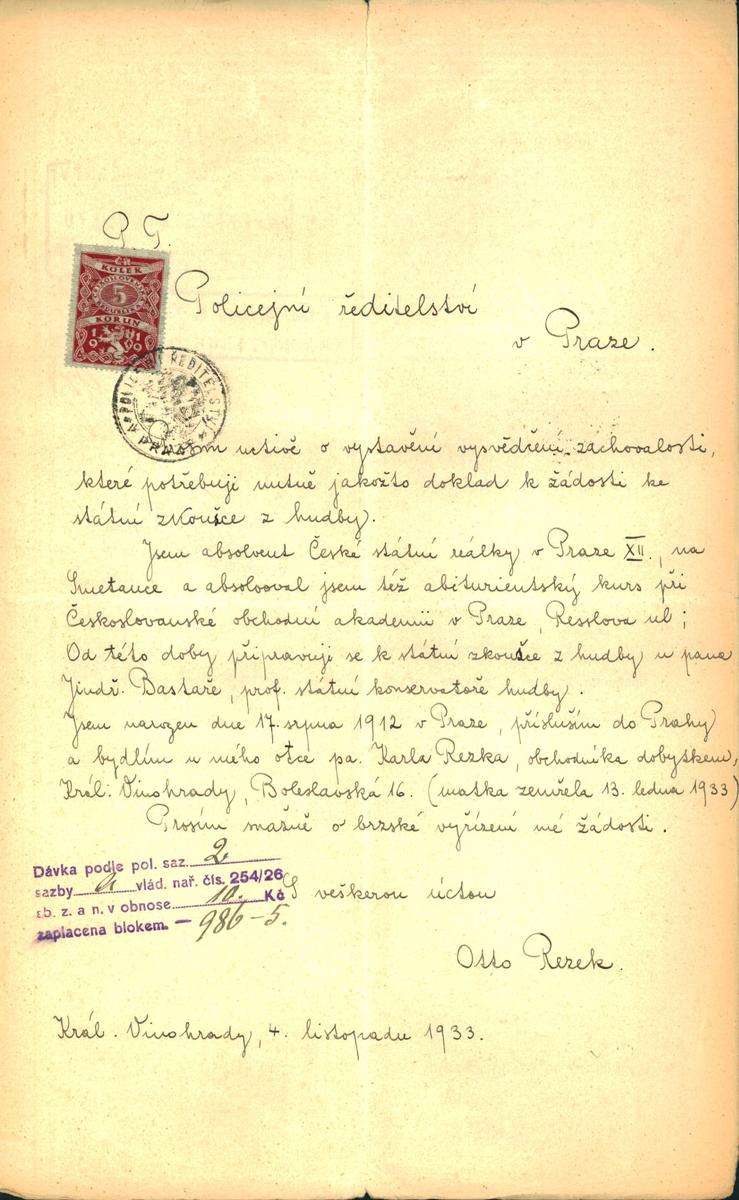 P. T.
ČR
KOLEK
5
KORUN
1919
Policejní ředitelství
v Praze.
POLICEJNÍ ŘEDITELSTVÍ
V PRAZE
uctivě o vystavění vysvědření zachovalosti,
které potřebuji nutně jakožto doklad k žádosti ke
státní zkoušce z hudby.
Jsem absolvent České státní reálky v Praze XII., na
Smetance a absolvoval jsem též abiturientský kurs při
Českoslovanské obchodní akademii v Praze, Resslova ul;
Od této doby připravuji se k státní zkoušce z hudby u pana
Jindř. Bastaře, prof. státní konservatoře hudby.
Jsem narozen dne 17. srpna 1912 v Praze, přísluším do Prahy
a bydlím u mého otce pa. Karla Rezka, obchodníka dobytkem,
Král. Vinohrady, Boleslavská 16. (matka zemřela 13. ledna 1933)
Prosím snažně o brzské vyřízení mé žádosti.
Dávka podle pol. saz. 2
sazby a vlád. nař. čís. 254/26
sb. z. a n. v obnose 10. Kč
zaplacena blokem. — 986-5.
S veškerou úctou
Otto Rezek.
Král. Vinohrady, 4. listopadu 1933.